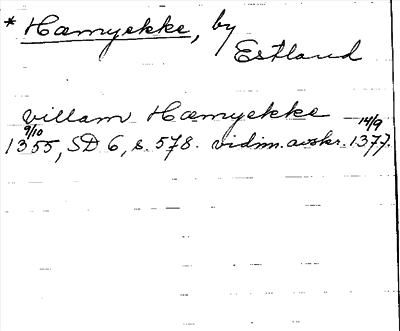 * Hæmyekke, by
Estland
villam Hæmyekke
9/10 1355, SD 6, s. 578. vidim. avskr. 14/9 1377.